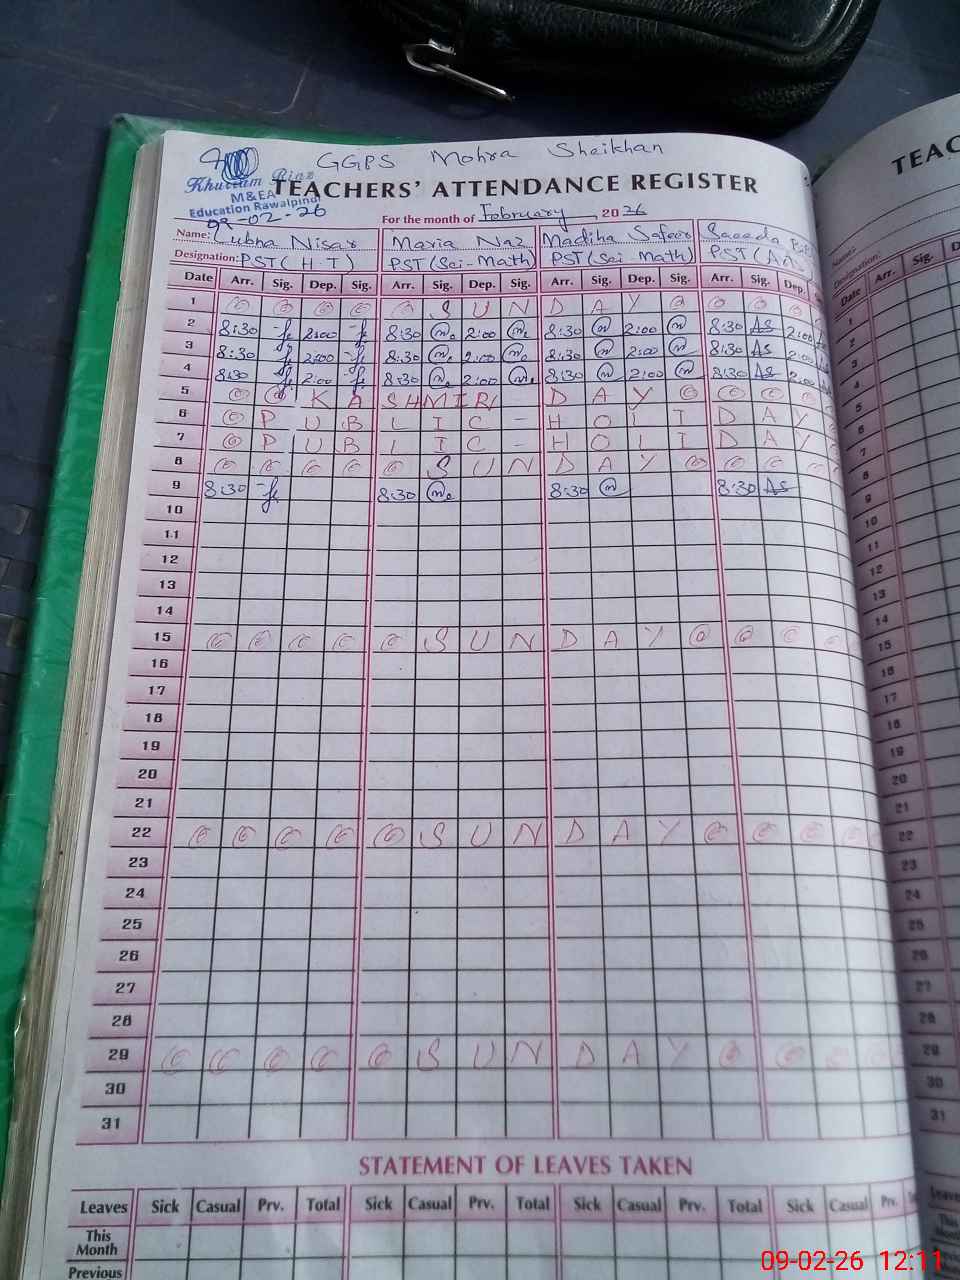 GGPS Mohra Sheikhan
Khurram Riaz
M&EA
Education Rawalpindi
09-02-26
TEACHERS' ATTENDANCE REGISTER
For the month of February 2026
Name: Lubna Nisar Maria Naz Madiha Safeer Saeeda
Designation: PST (H.T) PST (Sci-Math) PST (Sci-Math) PST (Arts
Date Arr. Sig. Dep. Sig. Arr. Sig. Dep. Sig. Arr. Sig. Dep. Sig. Arr. Sig. Dep.
1 S U N D A Y
2 8:30 2:00 8:30 2:00 8:30 2:00 8:30 AS 2:00
3 8:30 2:00 8:30 2:00 8:30 2:00 8:30 AS 2:00
4 8:30 2:00 8:30 2:00 8:30 2:00 8:30 AS 2:00
5 K A SHMIR D A Y
6 P U B L I C - H O L I D A Y
7 P U B L I C - H O L I D A Y
8 S U N D A Y
9 8:30 8:30 8:30 8:30 AS
10
11
12
13
14
15 S U N D A Y
16
17
18
19
20
21
22 S U N D A Y
23
24
25
26
27
28
29 S U N D A Y
30
31
STATEMENT OF LEAVES TAKEN
Leaves Sick Casual Prv. Total Sick Casual Prv. Total Sick Casual Prv. Total Sick Casual Prv.
This
Month
Previous
TEAC
Name:
Designation:
Date Arr. Sig.
1
2
3
4
5
6
7
8
9
10
11
12
13
14
15
16
17
18
19
20
21
22
23
24
25
26
27
28
29
30
31
09-02-26 12:11